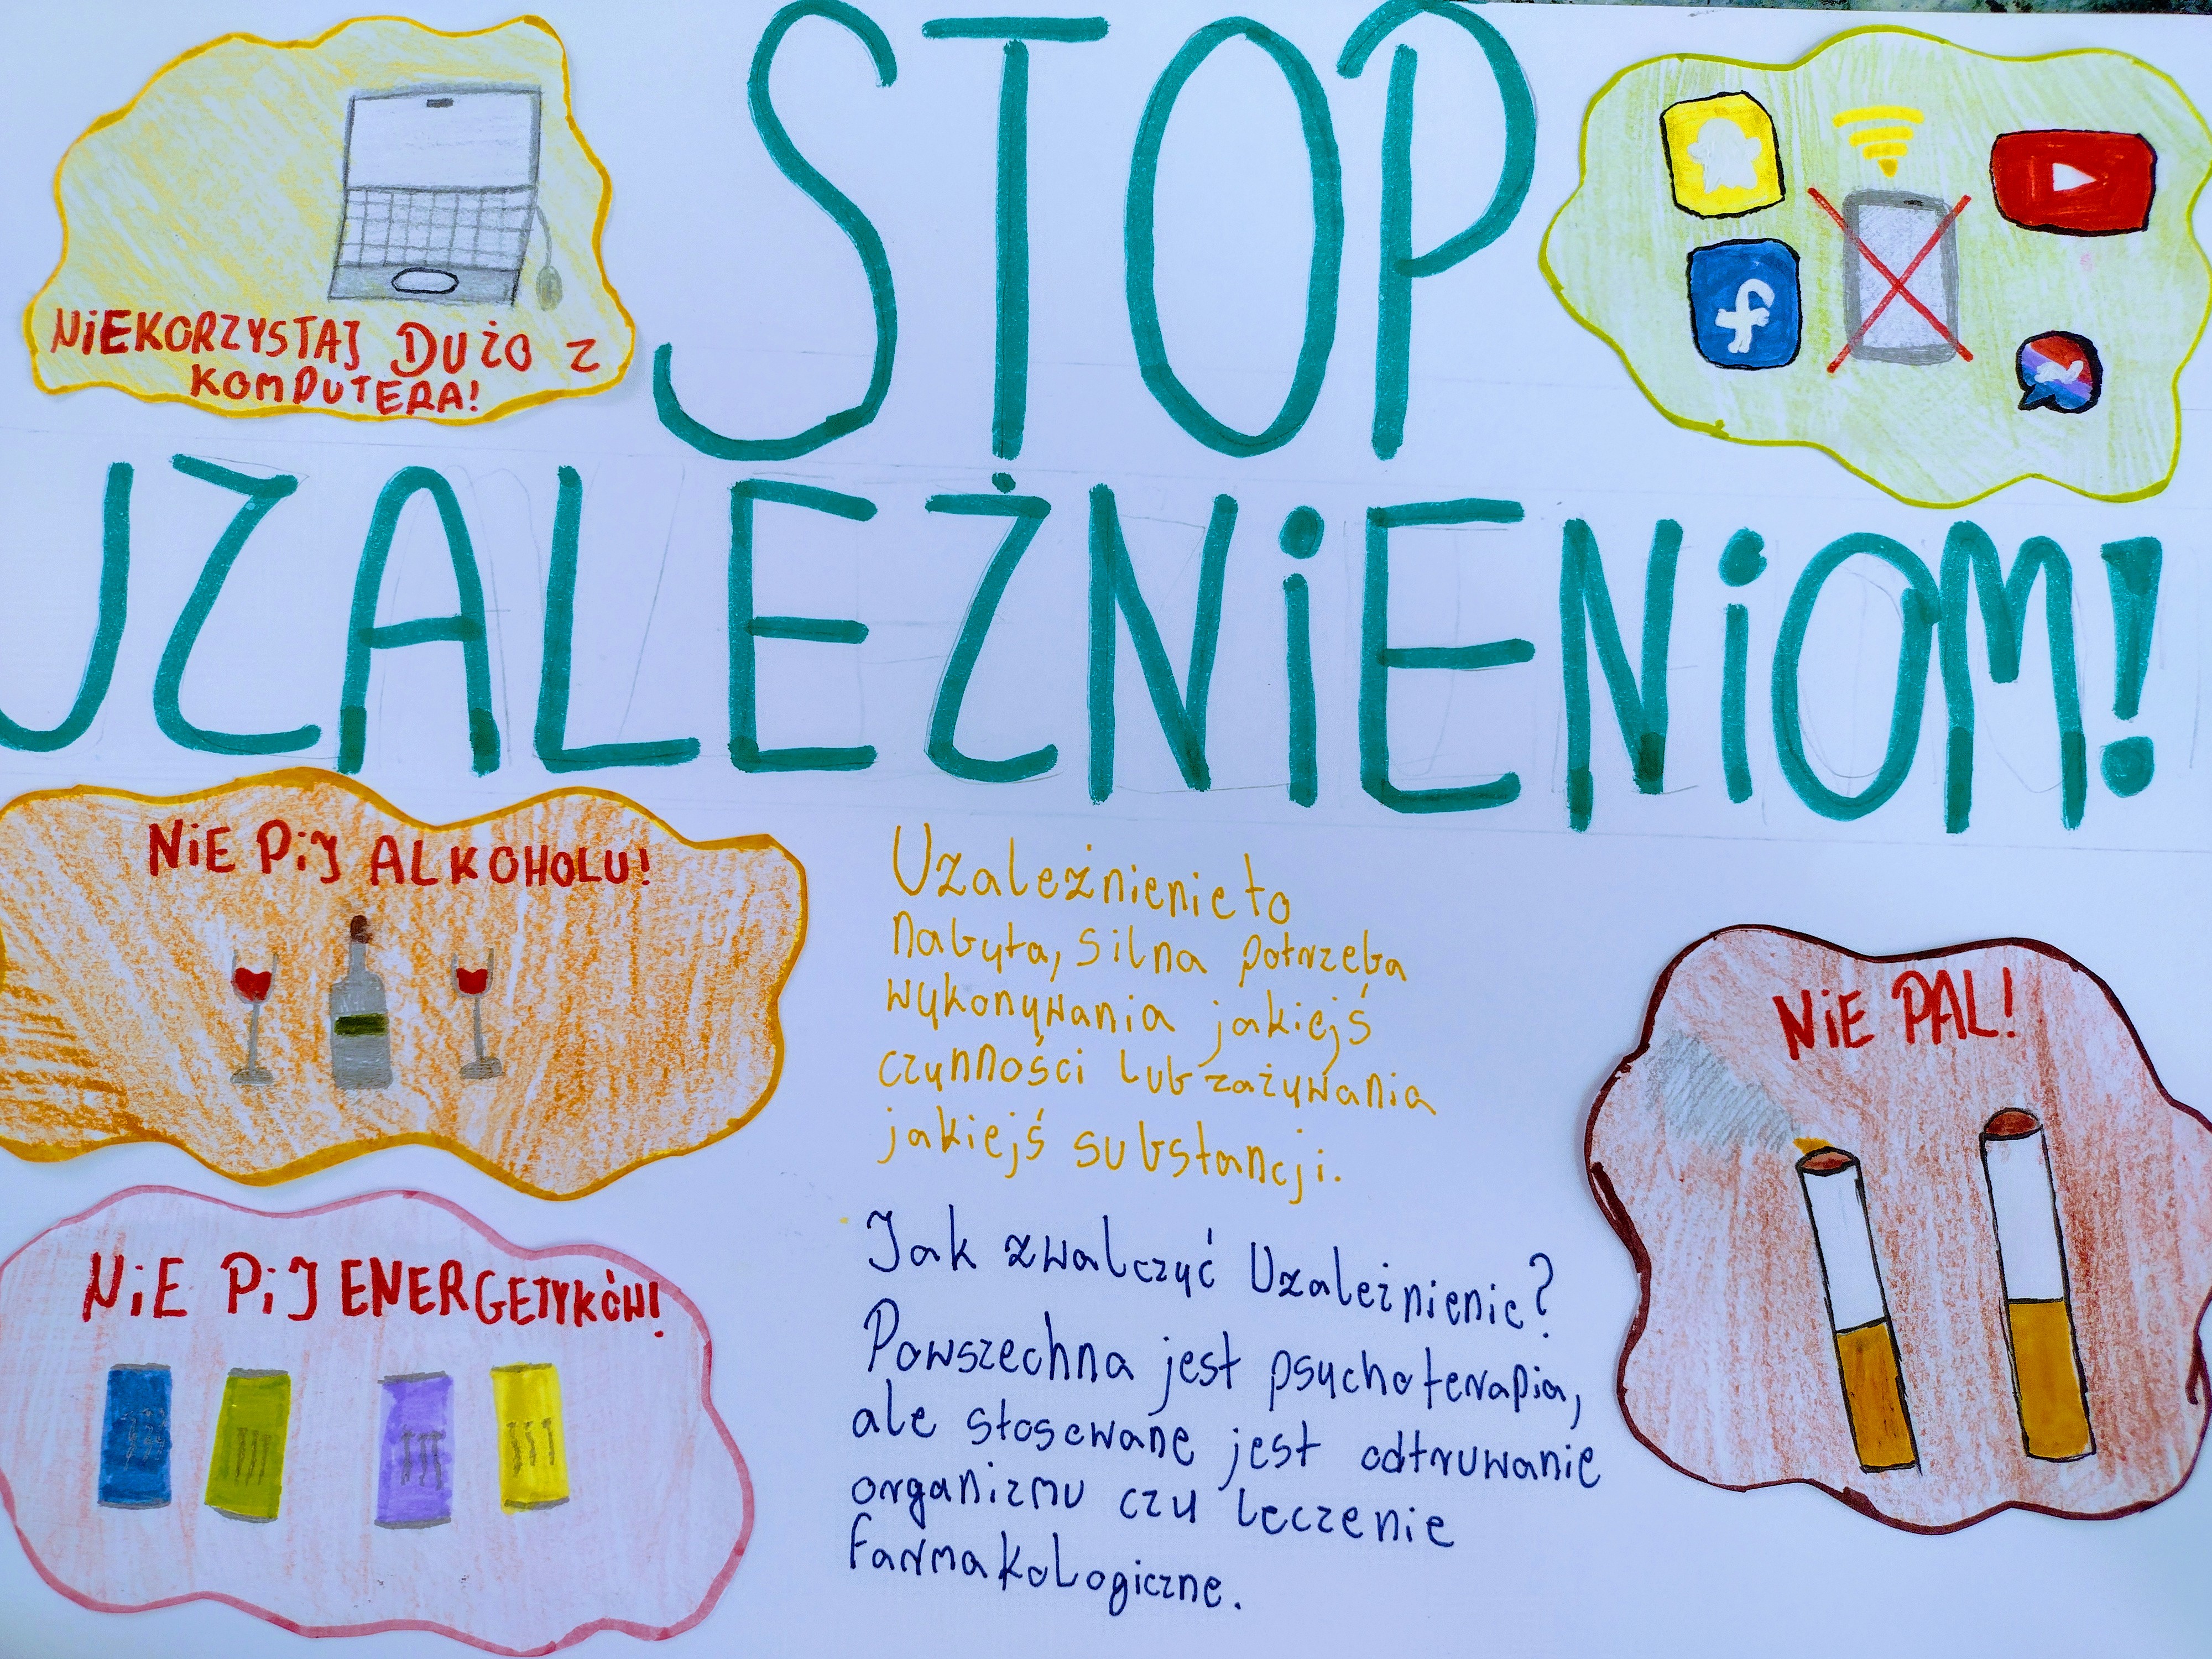 STOP
UZALEŻNiENiOM!
NiEKORZYSTAJ DUżO z
KOMPUTERA!
f
NiE PiJ ALKOHOLU!
NiE PiJ ENERGETYKÓW!
Uzależnienie to
nabyta, silna potrzeba
wykonywania jakiejś
czynności lub zażywania
jakiejś substancji.
Jak zwalczyć Uzależnienie?
Powszechna jest psychoterapia,
ale stosowane jest odtruwanie
organizmu czy leczenie
farmakologiczne.
NiE PAL!